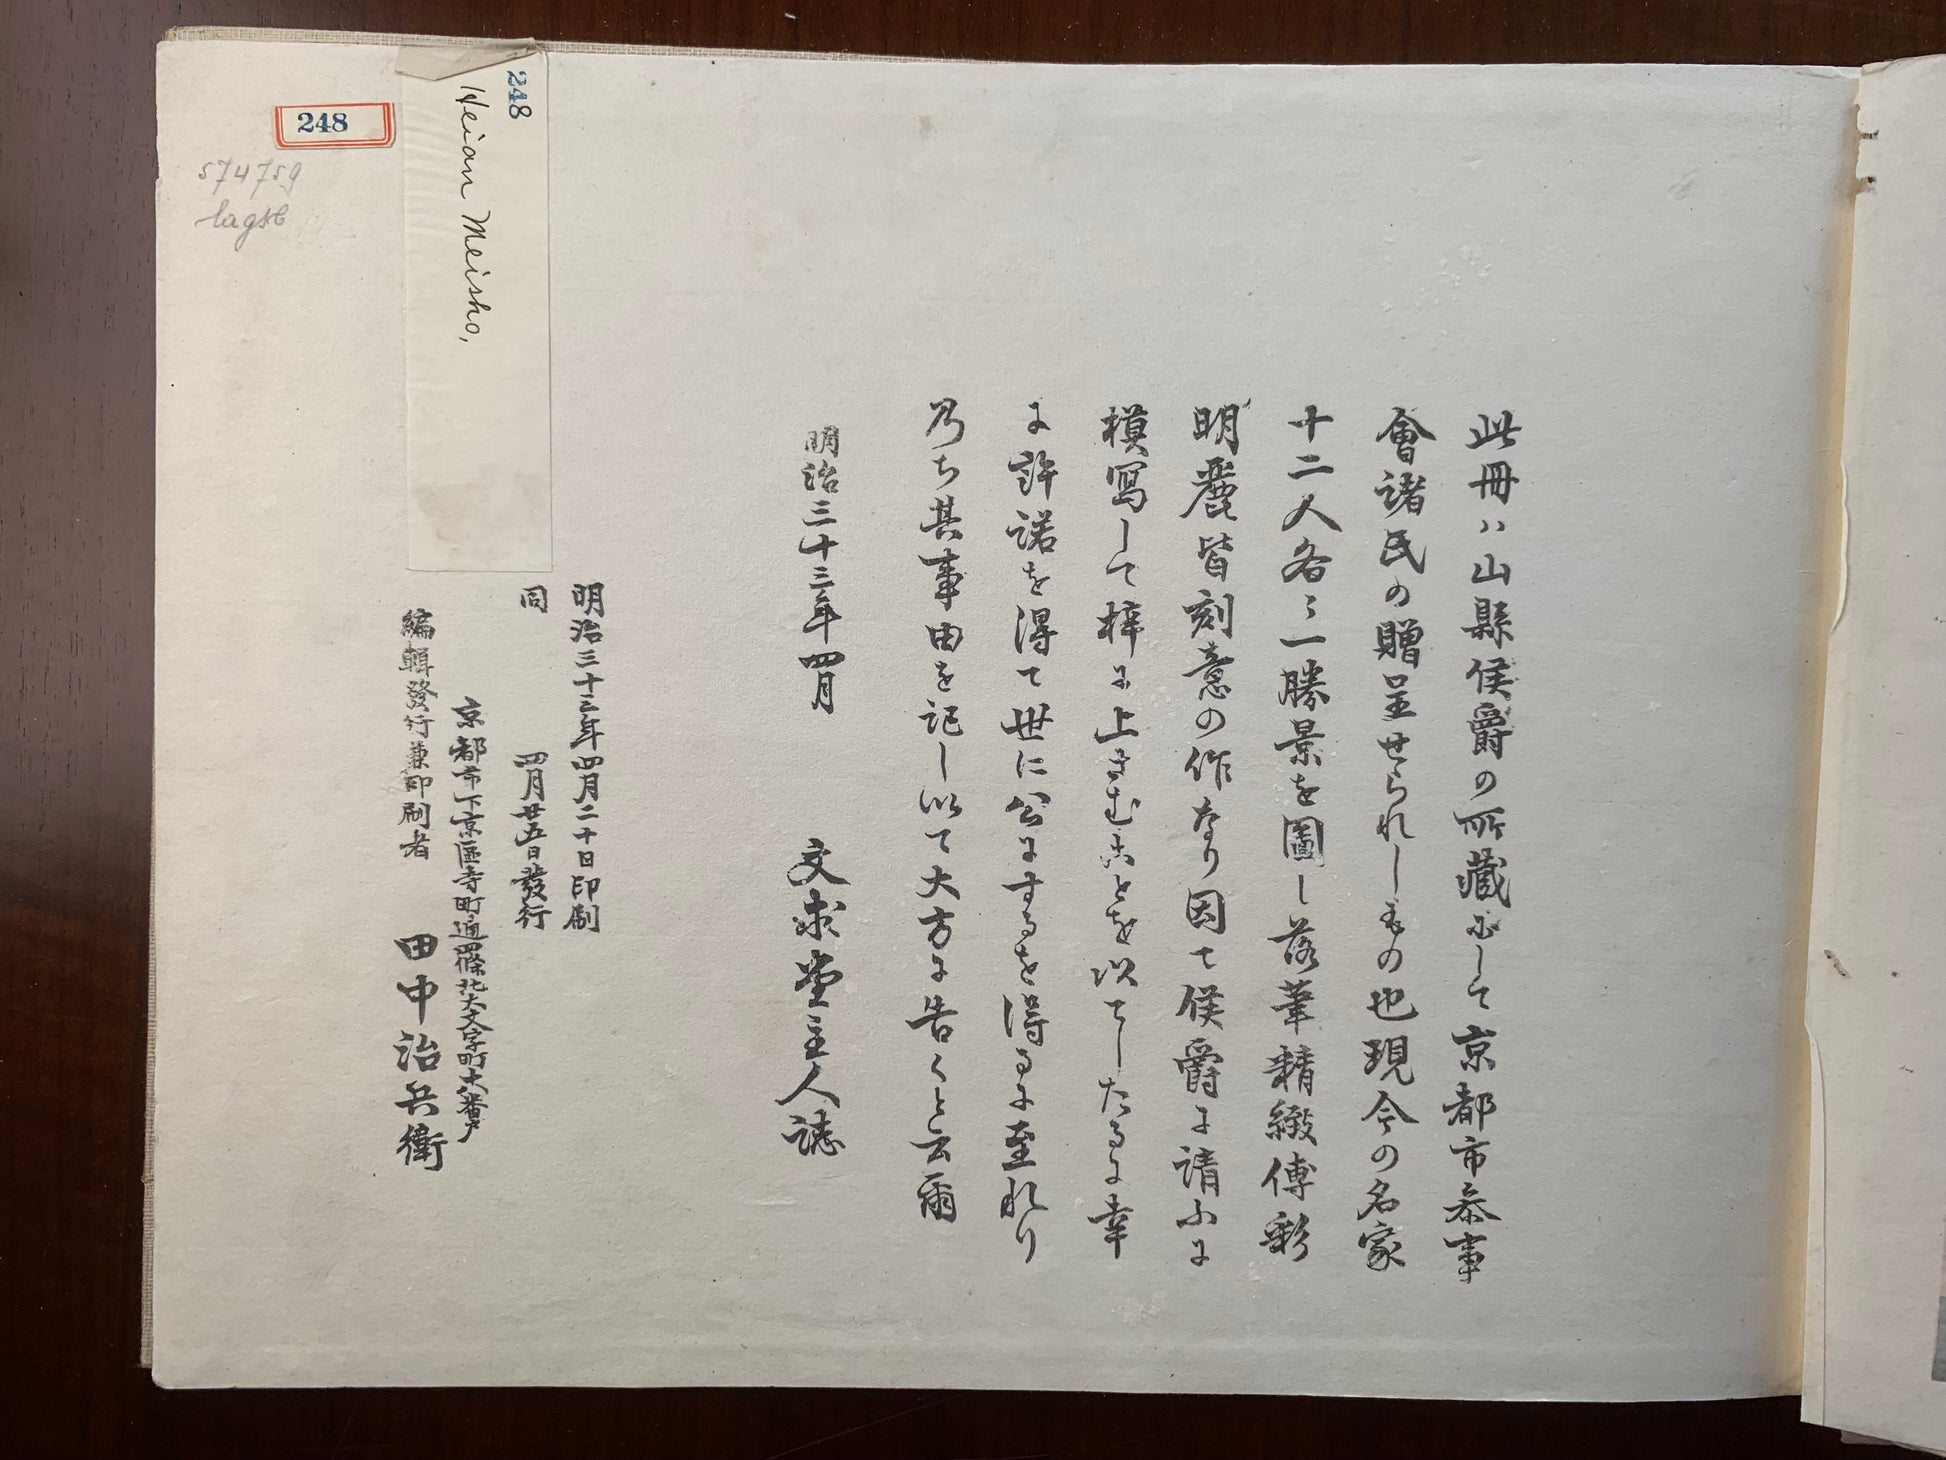 此冊ハ山縣侯爵の所藏にして京都市叅事
會諸氏の贈呈せられしもの也現今の名家
十二人各々一勝景を圖し落筆精緻傅彩
明麗皆刻意の作なり因て侯爵に請ふに
模寫して梓に上さむことを以てしたるに幸
に許諾を得て世に公にするを得るに至れり
乃ち其事由を記し以て大方に告くと云爾
明治三十三年四月
文求堂主人誌
明治三十三年四月二十日印刷
同 四月廿五日發行
京都市下京區寺町通四條北大文字町 番戶
編輯發行兼印刷者 田中治兵衛
248
Heian Meisho,
248
574759